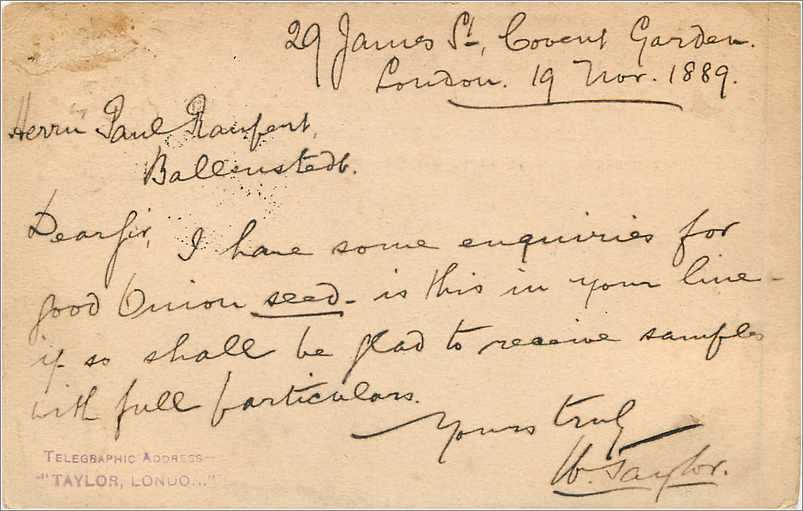 29 James St, Covent Garden.
London. 19 Nov. 1889.
Herrn Paul
Ballenstedt.
Dear Sir, I have some enquiries for
good Onion seed - is this in your line -
if so shall be glad to receive samples
with full particulars.
Yours truly
W. Taylor.
TELEGRAPHIC ADDRESS—
"TAYLOR, LONDO..."